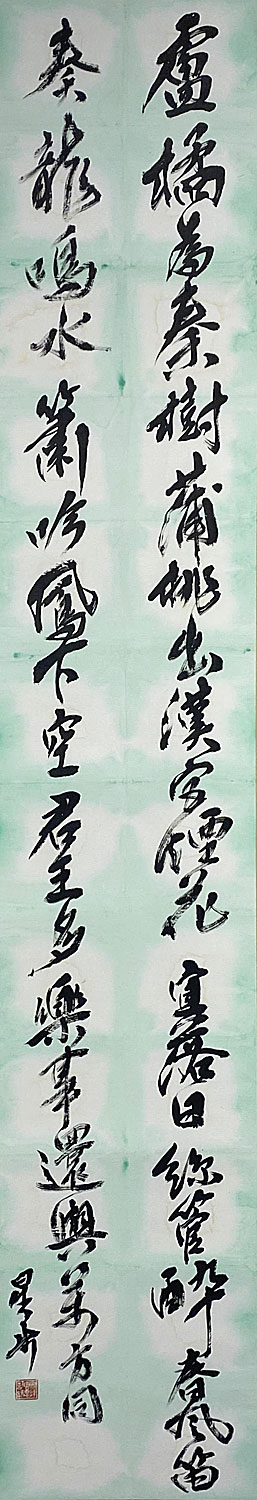 盧橘為秦樹蒲桃出漢宮煙花宜落日絲管醉春風笛
奏龍鳴水簫吟鳳下空君王多樂事還與萬方同